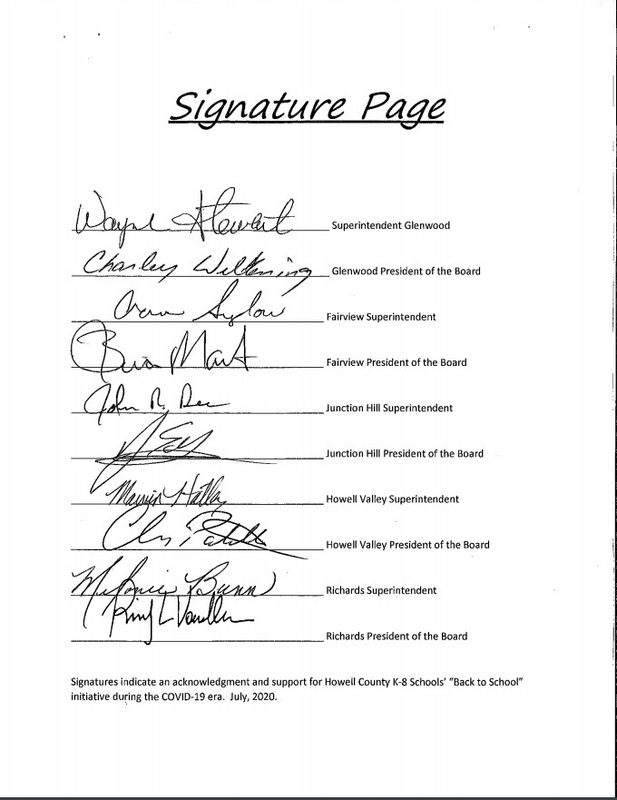 Signature Page
Wayne Stewart Superintendent Glenwood
Charley Wilkening Glenwood President of the Board
Fairview Superintendent
Fairview President of the Board
John R. Dee Junction Hill Superintendent
Junction Hill President of the Board
Howell Valley Superintendent
Howell Valley President of the Board
Melonie Bunn Richards Superintendent
Richards President of the Board
Signatures indicate an acknowledgment and support for Howell County K-8 Schools' "Back to School"
initiative during the COVID-19 era. July, 2020.